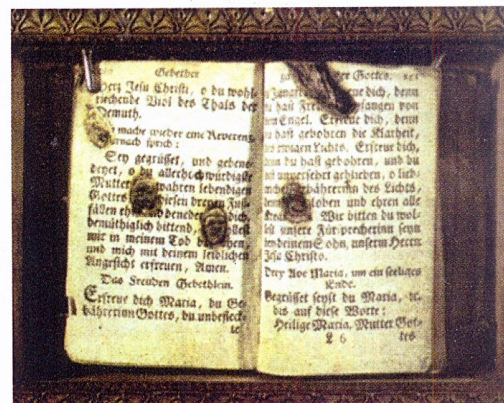 Gebether
Herz Jesu Christi, o du wohl-
riechende Viol des Thals der
Demuth.
mache wieder eine Reverenz
sprich:
Sey gegrüsset, und gebene-
deyet, o du allerhochwürdigste
Mutter wahren lebendigen
Gottes diesen dreyen Fuß-
fällen dich,
demüthiglich bittend,
mir in meinem Tod
und mich mit deinem leiblichen
Angesicht erfreuen, Amen.
Das Freuden Gebethlein.
Erfreue dich Maria, du Ge-
bährerin Gottes, du unbefleck-
te
Gottes.
dich, denn
du hast von
Engel. Erfreue dich, denn
du hast gebohren die Klarheit,
des ewigen Lichts. Erfreue dich,
denn du hast gebohren, und du
unversehrt geblieben, o lieb-
gebährerin des Lichts,
loben und ehren alle
Wir bitten du wol-
lest unsere Fürsprecherin seyn
bey deinem Sohn, unserm Herrn
Jesu Christo.
Drey Ave Maria, um ein seeliges
Ende.
Gegrüsset seyst du Maria, ꝛc.
bis auf diese Worte:
Heilige Maria, Mutter Got-
L 6 tes